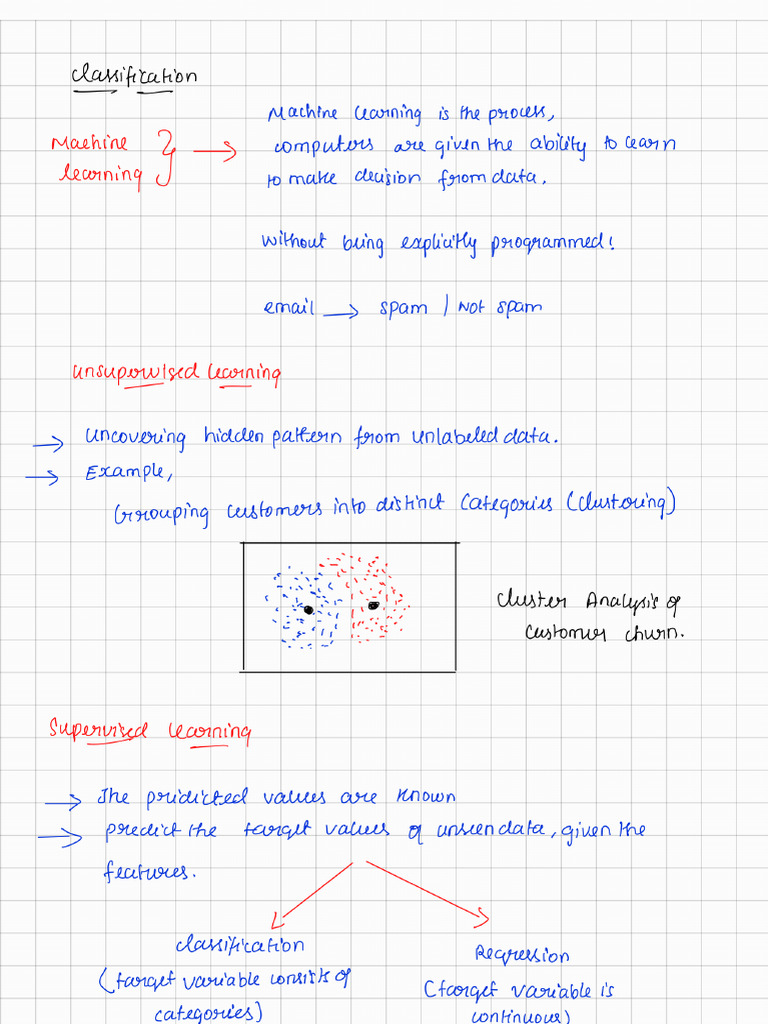 Classification
Machine learning } → Machine learning is the process,
computers are given the ability to learn
to make decision from data.
without being explicitly programmed!
email → spam / Not spam
Unsupervised learning
→ Uncovering hidden pattern from unlabeled data.
→ Example,
Grouping customers into distinct categories (Clustering)
Cluster Analysis of
customer churn.
Supervised learning
→ The pridicted values are known
→ predict the target values of unseen data, given the
features.
Classification
(target variable consists of
categories)
Regression
(target variable is
continuous)